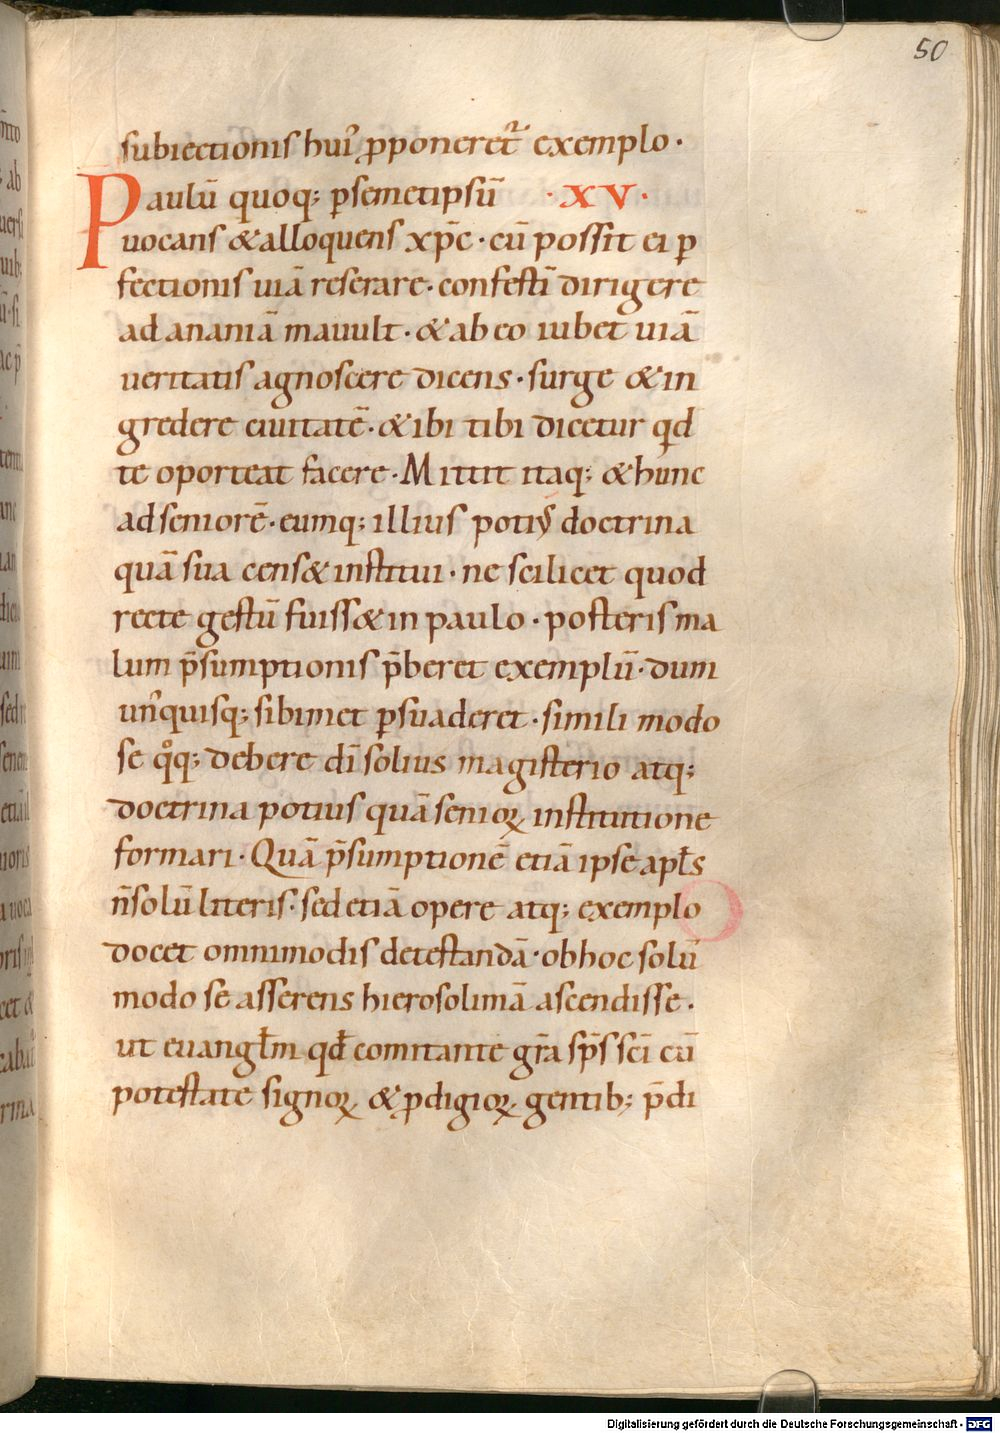 50
subiectionis huiꝰ ꝓponeret᷑ exemplo·
Paulū quoq; ꝑsemetipsū ·XV·
uocans &alloquens xp̄c·cū possit ei ꝑ
fectionis uiā reserare·confestī dirigere
ad ananiā mauult·&ab eo iubet uiā
ueritatis agnoscere dicens·surge &in
gredere ciuitatē·&ibi tibi dicetur qd
te oporteat facere·Mittit itaq; &hunc
ad seniorē·eumq; illius potiꝰ doctrina
quā sua cens& institui·ne scilicet quod
recte gestū fuiss& in paulo·posteris ma
lum p̄sumptionis p̄beret exemplū·dum
unꝰquisq; sibimet ꝑsuaderet·simili modo
se qͦq; debere dī solius magisterio atq;
doctrina potius quā senioꝝ institutione
formari·Quā p̄sumptionē etiā ipse apłs
n̄ solū literis·sed etiā opere atq; exemplo
docet omnimodis detestandā·ob hoc solū
modo se asserens hierosolimā ascendisse·
ut euangłm qđ comitante gr̄a sp̄s sc̄i cū
potestate signoꝝ &ꝓdigioꝝ gentib; p̄di
Digitalisierung gefördert durch die Deutsche Forschungsgemeinschaft - DFG